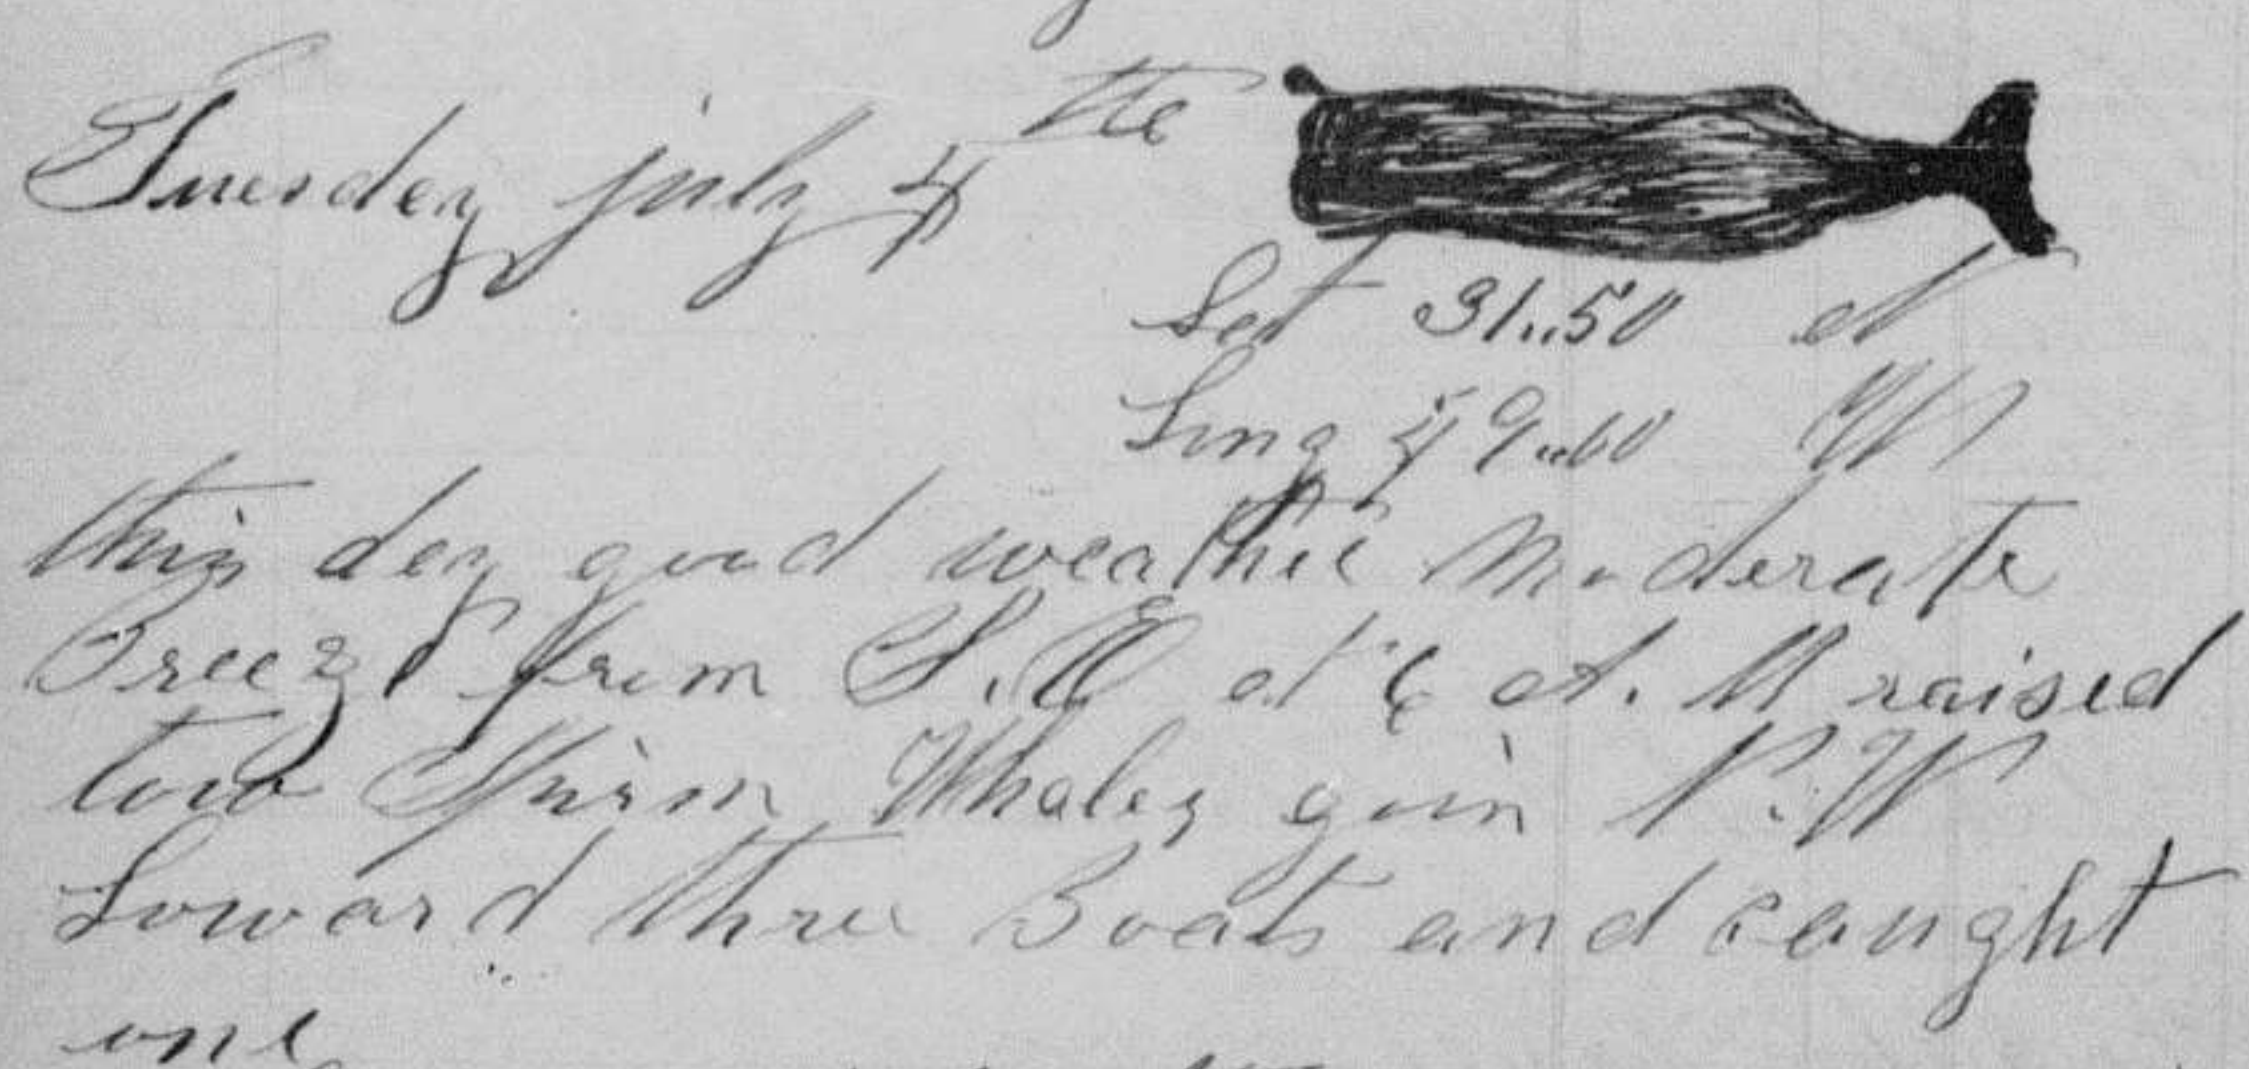 Tuesday july 4 the
Lat 31..50 N
Long 49..00 W
this day good weather Moderate
Breeze from S.E at 6 A. M raised
two Spirm Whales goin N.W
Loward three Boats and caught
one